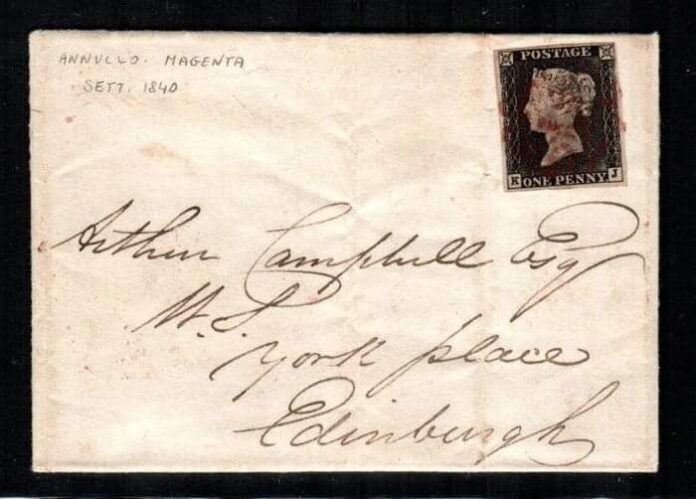 ANNULLO. MAGENTA
SETT. 1840
POSTAGE
K ONE PENNY J
Arthur Campbell Esq
W.S.
York place
Edinburgh